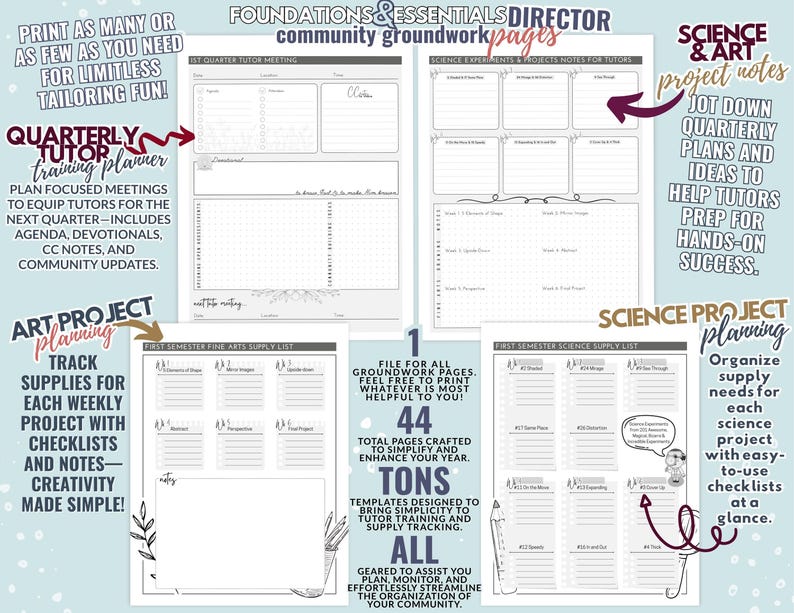 FOUNDATIONS&ESSENTIALS DIRECTOR
community groundwork pages
PRINT AS MANY OR
AS FEW AS YOU NEED
FOR LIMITLESS
TAILORING FUN!
QUARTERLY
TUTOR
training planner
PLAN FOCUSED MEETINGS
TO EQUIP TUTORS FOR THE
NEXT QUARTER—INCLUDES
AGENDA, DEVOTIONALS,
CC NOTES, AND
COMMUNITY UPDATES.
1ST QUARTER TUTOR MEETING
Date
Location
Time
Agenda
Attendees
CC notes
Devotional
to know God & to make Him known
UPCOMING OPEN HOUSES/EVENTS
COMMUNITY BUILDING IDEAS
next tutor meeting...
Date
Location
Time
SCIENCE EXPERIMENTS & PROJECTS NOTES FOR TUTORS
2 Shaded & 17 Same Place
24 Mirage & 26 Distortion
9 See Through
11 On the Move & 12 Speedy
13 Expanding & 16 In and Out
3 Cover Up & 4 Thick
ART NOTES
Week 1: 5 Elements of Shape
Week 2: Mirror Images
Week 3: Upside Down
Week 4: Abstract
Week 5: Perspective
Week 6: Final Project
SCIENCE
& ART
project notes
JOT DOWN
QUARTERLY
PLANS AND
IDEAS TO
HELP TUTORS
PREP FOR
HANDS-ON
SUCCESS.
ART PROJECT
planning
TRACK
SUPPLIES FOR
EACH WEEKLY
PROJECT WITH
CHECKLISTS
AND NOTES—
CREATIVITY
MADE SIMPLE!
FIRST SEMESTER FINE ARTS SUPPLY LIST
Wk 1
5 Elements of Shape
Wk 2
Mirror Images
Wk 3
Upside-down
Wk 4
Abstract
Wk 5
Perspective
Wk 6
Final Project
notes
1
FILE FOR ALL
GROUNDWORK PAGES.
FEEL FREE TO PRINT
WHATEVER IS MOST
HELPFUL TO YOU!
44
TOTAL PAGES CRAFTED
TO SIMPLIFY AND
ENHANCE YOUR YEAR.
TONS
TEMPLATES DESIGNED TO
BRING SIMPLICITY TO
TUTOR TRAINING AND
SUPPLY TRACKING.
ALL
GEARED TO ASSIST YOU
PLAN, MONITOR, AND
EFFORTLESSLY STREAMLINE
THE ORGANIZATION OF
YOUR COMMUNITY.
FIRST SEMESTER SCIENCE SUPPLY LIST
Wk 1
#2 Shaded
Wk 2
#24 Mirage
Wk 3
#9 See Through
#17 Same Place
#26 Distortion
Science Experiments
from 201 Awesome,
Magical, Bizarre &
Incredible Experiments
Wk 4
#11 On the Move
Wk 5
#13 Expanding
Wk 6
#3 Cover Up
#12 Speedy
#16 In and Out
#4 Thick
SCIENCE PROJECT
planning
Organize
supply
needs for
each
science
project
with easy-
to-use
checklists
at a
glance.